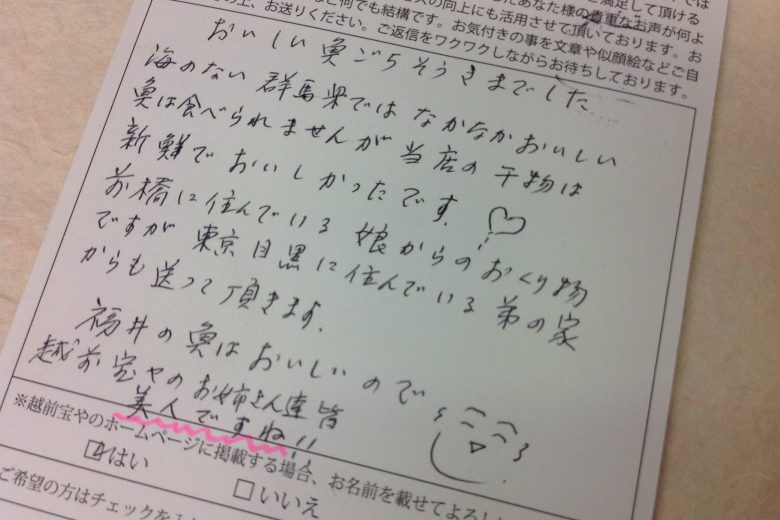 満足して頂ける
の向上にも活用させて頂いております。お
あなた様の貴重なお声が何よ
など何でも結構です。お気付きの事を文章や似顔絵などご自
の上、お送りください。ご返信をワクワクしながらお待ちしております。
おいしい魚ごちそうさまでした
海のない群馬県ではなかなかおいしい
魚は食べられませんが当店の干物は
新鮮でおいしかったです。♡
前橋に住んでいる娘からのおくり物
ですが東京目黒に住んでいる弟の家
からも送って頂きます.
福井の魚はおいしいので
越前宝やのお姉さん達皆
美人ですね!!
※越前宝やのホームページに掲載する場合、お名前を載せてよろし
☑はい
□いいえ
ご希望の方はチェックを入